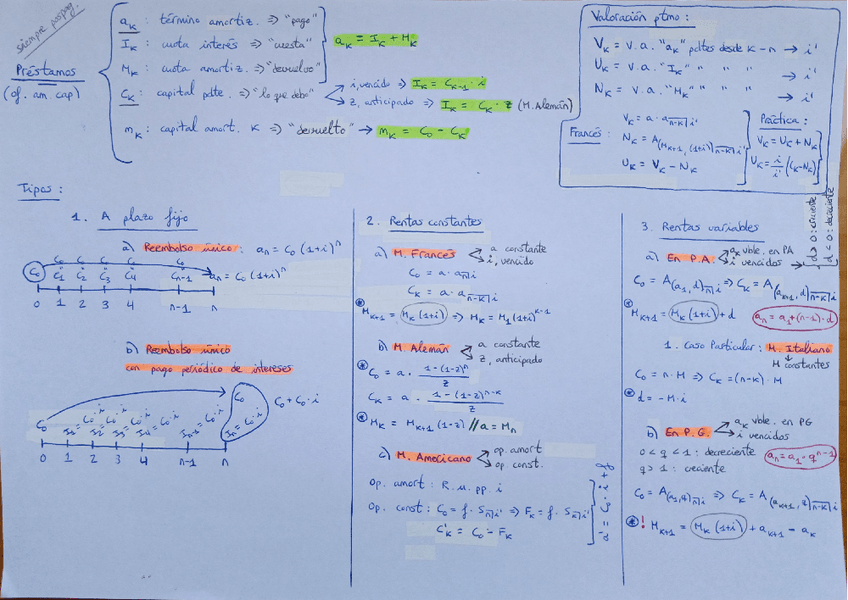 siempre pospag.
Préstamos
(of. am cap)
a_K : término amortiz. => "pago"
I_K : cuota interés => "cuesta"
M_K : cuota amortiz. => "devuelvo"
a_K = I_K + M_K
C_K : capital pdte. => "lo que debo"
i, vencido => I_K = C_{K-1} · i
z, anticipado => I_K = C_K · z (M. Alemán)
m_K : capital amort. K => "devuelto" → m_K = C_0 - C_K
Valoración ptmo :
V_K = v.a. "a_K" pdtes desde K-n → i'
U_K = v.a. "I_K" " " " → i'
N_K = v.a. "M_K" " " " → i'
Francés :
V_K = a · a_{n-K|i'}
N_K = A_{(M_{K+1}, (1+i))n-K|i'}
U_K = V_K - N_K
Práctica :
V_K = U_K + N_K
U_K = i/i' (C_K - N_K)
Tipos :
1. A plazo fijo
a) Reembolso único : a_n = C_0 (1+i)^n
C_0 C_0 C_0 C_0 C_0
C_0 C_1 C_2 C_3 C_4 C_{n-1} a_n = C_0 (1+i)^n
0 1 2 3 4 n-1 n
b) Reembolso único
con pago periódico de intereses
C_0 C_0 + C_0 · i
C_0 I_1 = C_0 · i I_2 = C_0 · i I_3 = C_0 · i I_4 = C_0 · i I_{n-1} = C_0 · i I_n = C_0 · i
0 1 2 3 4 n-1 n
2. Rentas constantes
a) M. Francés
a constante
i, vencido
C_0 = a · a_{n|i}
C_K = a · a_{n-K|i}
* M_{K+1} = M_K (1+i) => M_K = M_1 (1+i)^{K-1}
b) M. Alemán
a constante
z, anticipado
* C_0 = a · 1-(1-z)^n / z
C_K = a · 1-(1-z)^{n-K} / z
* M_K = M_{K+1} (1-z) // a = M_n
c) M. Americano
op. amort
op const.
Op. amort : R. u. pp i
Op. const : C_0 = f · S_{n|i'} => F_K = f · S_{K|i'}
C'_K = C_0 - F_K
3. Rentas variables
a) En P.A.
a_K vble. en PA
i vencidos
d > 0 : creciente
d < 0 : decreciente
C_0 = A_{(a_1, d)n|i} => C_K = A_{(a_{K+1}, d)n-K|i}
* M_{K+1} = M_K (1+i) + d
a_n = a_1 + (n-1) · d
1. Caso Particular : M. Italiano
M constantes
C_0 = n · M => C_K = (n-K) · M
* d = -M · i
b) En P.G.
a_K vble. en PG
i vencidos
0 < q < 1 : decreciente
q > 1 : creciente
a_n = a_1 · q^{n-1}
C_0 = A_{(a_1, q)n|i} => C_K = A_{(a_{K+1}, q)n-K|i}
* ! M_{K+1} = M_K (1+i) + a_{K+1} - a_K